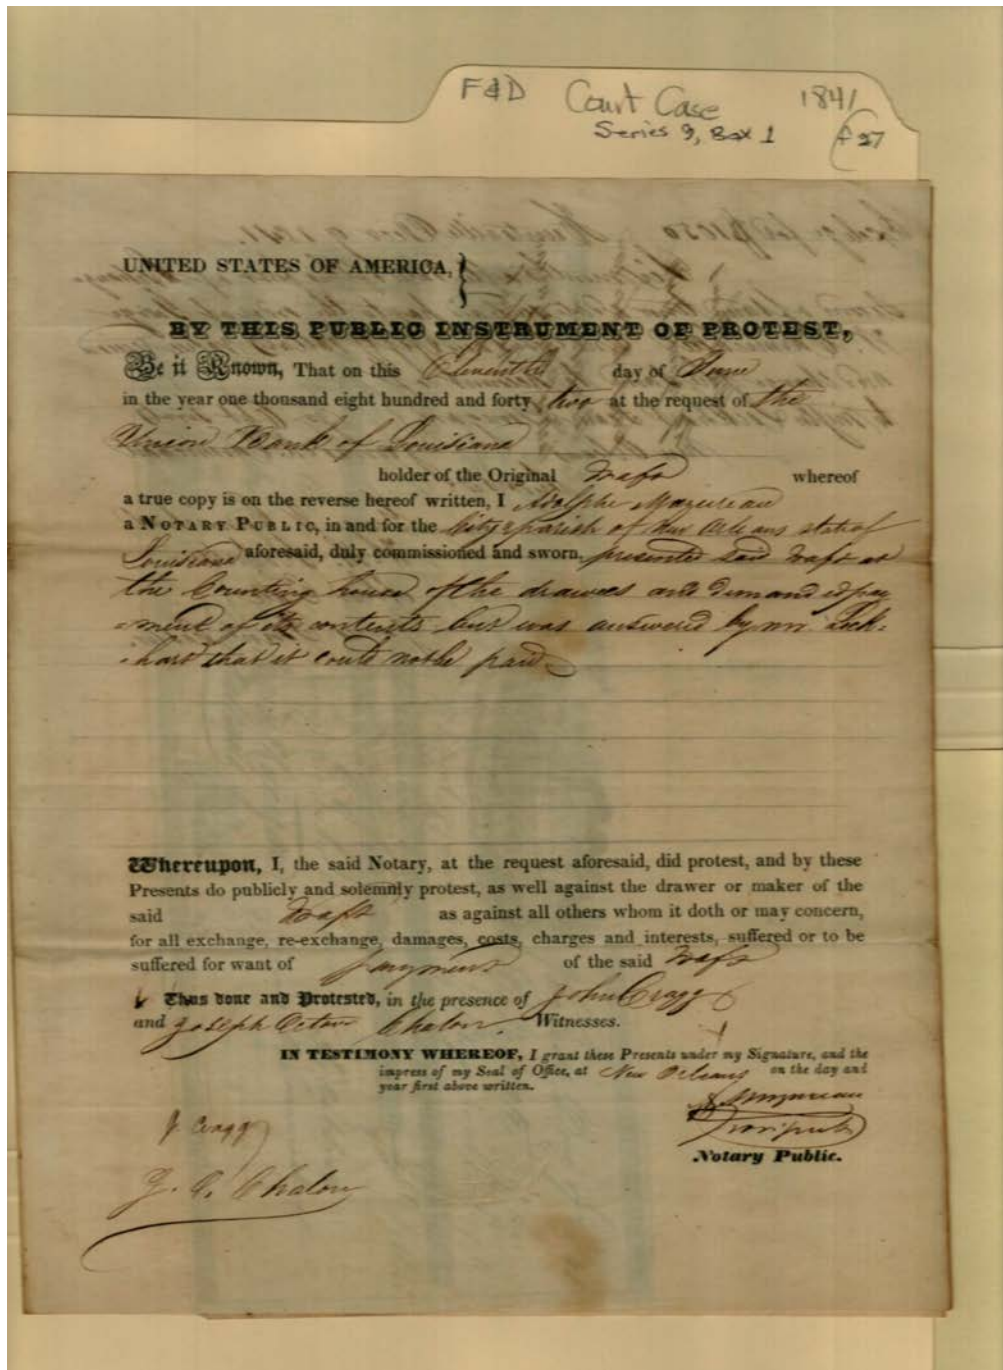 F&D Court Case 1841
Series 9, Box 1 f 27
UNITED STATES OF AMERICA,
BY THIS PUBLIC INSTRUMENT OF PROTEST,
Be it Known, That on this Eleventh day of June
in the year one thousand eight hundred and forty two at the request of the
Union Bank of Louisiana
holder of the Original Draft whereof
a true copy is on the reverse hereof written, I Adolphe Mazureau
a NOTARY PUBLIC, in and for the City & parish of New Orleans state of
Louisiana aforesaid, duly commissioned and sworn, presented said Draft at
the Counting house of the drawees and demanded pay
-ment of its contents but was answered by mr Lock-
-hart that it could not be paid
Whereupon, I, the said Notary, at the request aforesaid, did protest, and by these
Presents do publicly and solemnly protest, as well against the drawer or maker of the
said Draft as against all others whom it doth or may concern,
for all exchange, re-exchange, damages, costs, charges and interests, suffered or to be
suffered for want of payment of the said Draft
Thus done and Protested, in the presence of John Cragg
and Joseph Octave Chalon Witnesses.
IN TESTIMONY WHEREOF, I grant these Presents under my Signature, and the
impress of my Seal of Office, at New Orleans on the day and
year first above written.
A Mazureau
J. Cragg Not. pub.
Notary Public.
J. O. Chalon